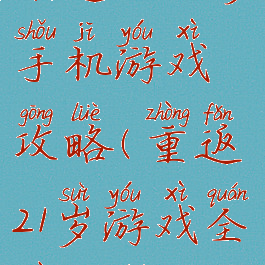 shǒu jī yóu xì
手机游戏
gōng lüè zhòng fǎn
攻略(重返
suì yóu xì quán
21岁游戏全